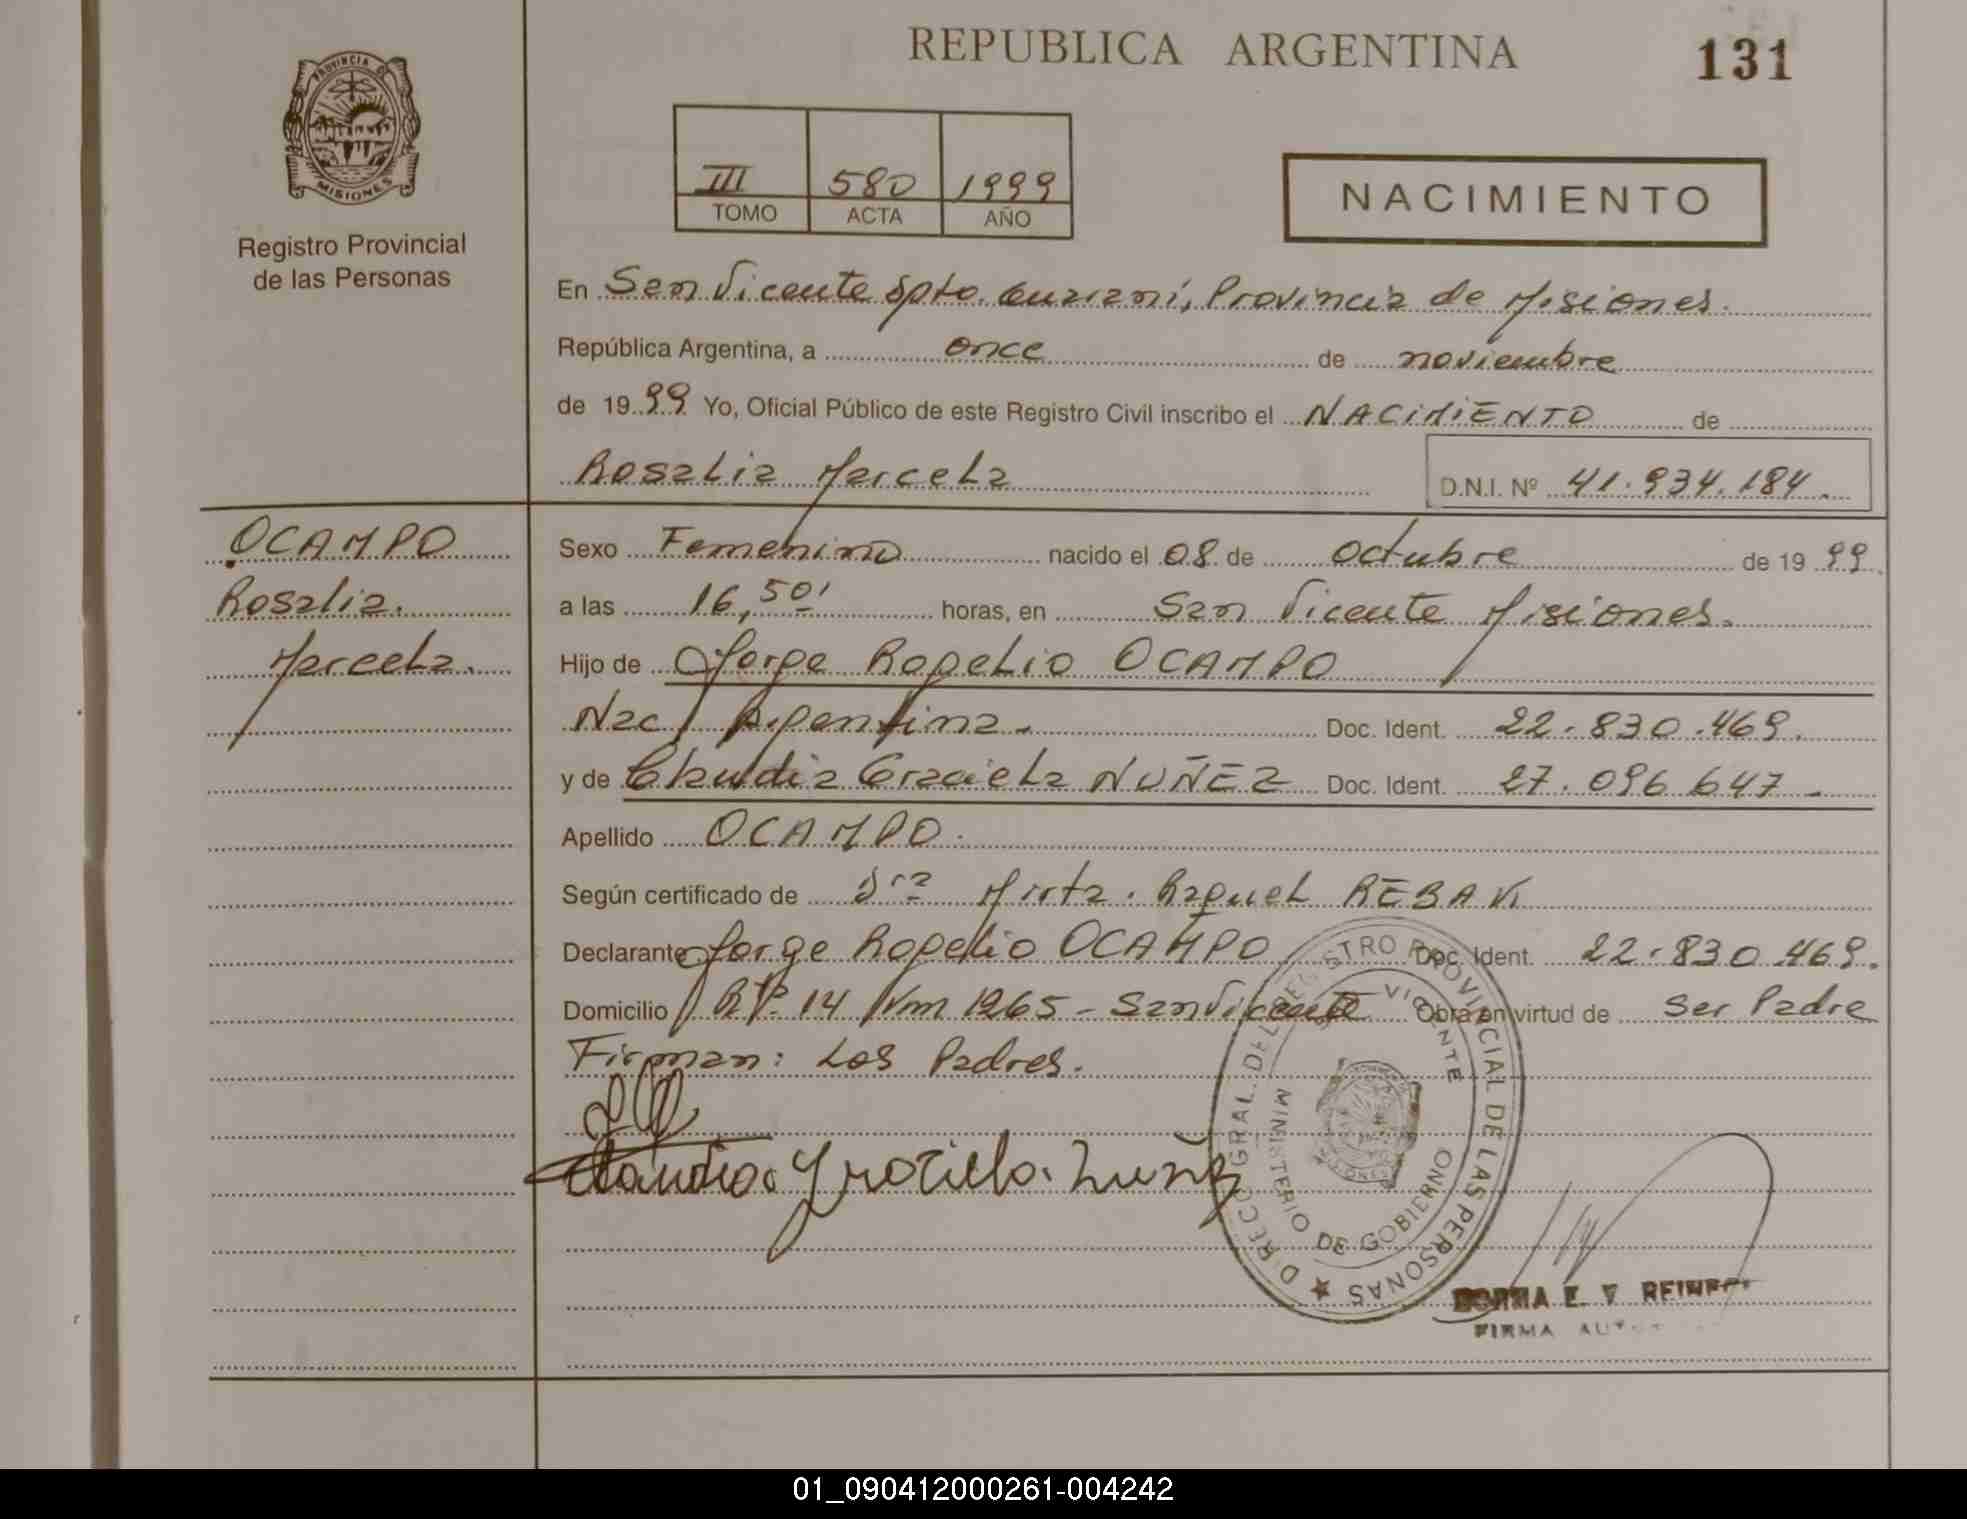 REPUBLICA ARGENTINA
131
PROVINCIA DE
MISIONES
Registro Provincial
de las Personas
III 580 1999
TOMO ACTA AÑO
NACIMIENTO
En San Vicente Dpto. Guaraní, Provincia de Misiones.
República Argentina, a once de noviembre
de 1999 Yo, Oficial Público de este Registro Civil inscribo el NACIMIENTO de
Rosalia Marcela D.N.I. Nº 41.934.184.
OCAMPO
Rosalia.
Marcela.
Sexo Femenino nacido el 08 de octubre de 1999
a las 16,50' horas, en San Vicente Misiones.
Hijo de Jorge Rogelio OCAMPO
Nac Argentina. Doc. Ident. 22.830.469.
y de Claudia Graciela NUÑEZ Doc. Ident. 27.096.647.
Apellido OCAMPO.
Según certificado de Dra Mirta. Raquel
Declarante Jorge Rogelio OCAMPO Doc. Ident. 22.830.469.
Domicilio 14 Km 1265 - San Vicente Obra en virtud de Ser Padre
Firman: Los Padres.
DIRECC GRAL. DEL REGISTRO PROVINCIAL DE LAS PERSONAS
VICENTE
MINISTERIO DE GOBIERNO
E. V.
FIRMA
01_090412000261-004242